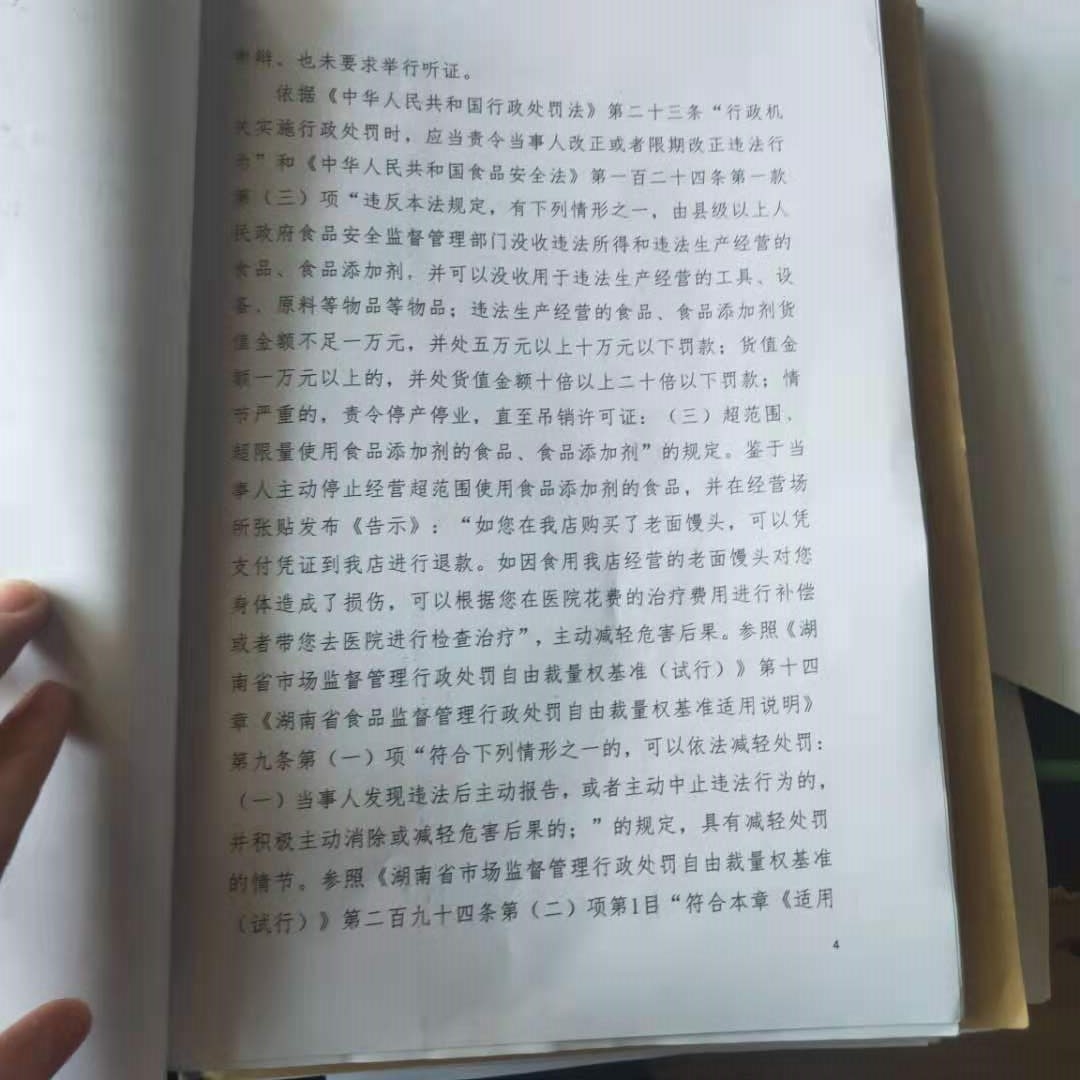 辩、也未要求举行听证。
依据《中华人民共和国行政处罚法》第二十三条“行政机
关实施行政处罚时，应当责令当事人改正或者限期改正违法行
为”和《中华人民共和国食品安全法》第一百二十四条第一款
第（三）项“违反本法规定，有下列情形之一，由县级以上人
民政府食品安全监督管理部门没收违法所得和违法生产经营的
食品、食品添加剂，并可以没收用于违法生产经营的工具、设
备、原料等物品等物品；违法生产经营的食品、食品添加剂货
值金额不足一万元，并处五万元以上十万元以下罚款；货值金
额一万元以上的，并处货值金额十倍以上二十倍以下罚款；情
节严重的，责令停产停业，直至吊销许可证：（三）超范围、
超限量使用食品添加剂的食品、食品添加剂”的规定。鉴于当
事人主动停止经营超范围使用食品添加剂的食品，并在经营场
所张贴发布《告示》：“如您在我店购买了老面馒头，可以凭
支付凭证到我店进行退款。如因食用我店经营的老面馒头对您
身体造成了损伤，可以根据您在医院花费的治疗费用进行补偿
或者带您去医院进行检查治疗”，主动减轻危害后果。参照《湖
南省市场监督管理行政处罚自由裁量权基准（试行）》第十四
章《湖南省食品监督管理行政处罚自由裁量权基准适用说明》
第九条第（一）项“符合下列情形之一的，可以依法减轻处罚：
（一）当事人发现违法后主动报告，或者主动中止违法行为的，
并积极主动消除或减轻危害后果的；”的规定，具有减轻处罚
的情节。参照《湖南省市场监督管理行政处罚自由裁量权基准
（试行）》第二百九十四条第（二）项第1目“符合本章《适用
4